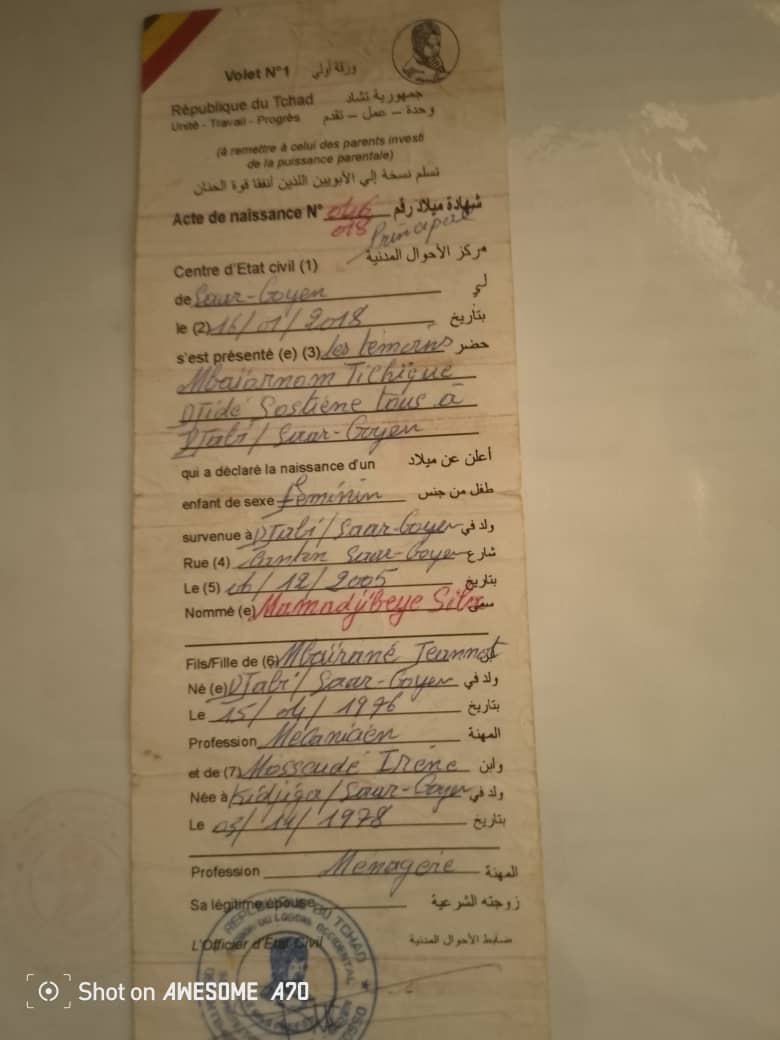 Volet N°1 ورقة أولي
République du Tchad جمهورية تشاد
Unité - Travail - Progrès وحدة – عمل – تقدم
(à remettre à celui des parents investi
de la puissance parentale)
تسلم نسخة إلي الأبويين اللذين أنفقا قوة الحنان
Acte de naissance N° 046 شهادة ميلاد رقم
018 Principal
Centre d'Etat civil (1) مركز الأحوال المدنية
de Saar-Goyen لي
le (2) 16/01/2018 بتاريخ
s'est présenté (e) (3) les témoins حضر
Mbaïornom Tichique
Djidé Sostène tous à
Djabi / Saar-Goyen
qui a déclaré la naissance d'un أعلن عن ميلاد
enfant de sexe féminin طفل من جنس
survenue à Djabi / Saar-Goyen ولد في
Rue (4) Saar-Goyen شارع
Le (5) 16/12/2005 بتاريخ
Nommé (e) Mamadjibeye سمى
Fils/Fille de (6) Mbaïrané Jeannot
Né (e) Djabi / Saar-Goyen ولد في
Le 15/04/1976 بتاريخ
Profession Mécanicien المهنة
et de (7) Mossoudé Irène وابن
Née à Kidjiga / Saar-Goyen ولد في
Le 03/11/1978 بتاريخ
Profession Ménagère المهنة
Sa légitime épouse زوجته الشرعية
L'Officier d'Etat Civil ضابط الأحوال المدنية
REPUBLIQUE DU TCHAD
LOGONE OCCIDENTAL
Shot on AWESOME A70